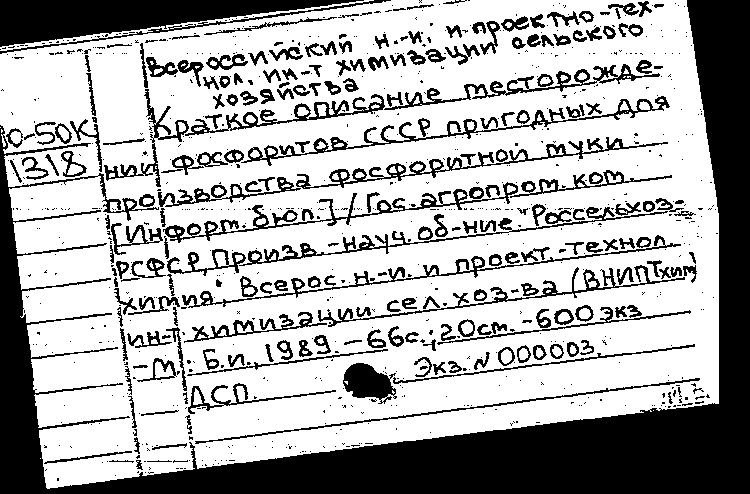 Всероссийский н.-и. и проектно-тех-
нол. ин-т химизации сельского
хозяйства
Краткое описание месторожде-
-50К
1318
ний фосфоритов СССР пригодных для
производства фосфоритной муки:
[Информ. бюл.] / Гос. агропром. ком.
РСФСР, Произв.-науч. об-ние "Россельхоз-
химия", Всерос. н.-и. и проект.-технол.
ин-т химизации сел. хоз-ва (ВНИПТхим)
-М.: Б.и., 1989. - 66с.; 20см. - 600 экз
Экз. N 000003.
ДСП.